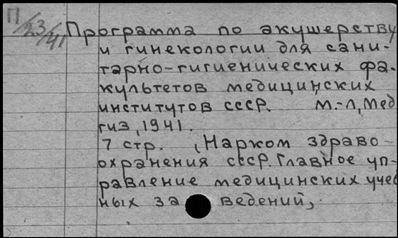 П/23/41
Программа по акушерству
и гинекологии для сани-
тарно-гигиенических фа-
культетов медицинских
институтов СССР. М.-Л, Мед
гиз, 1941.
7 стр. (Нарком здраво-
охранения СССР. Главное уп-
равление медицинских учеб
ных за ведений,